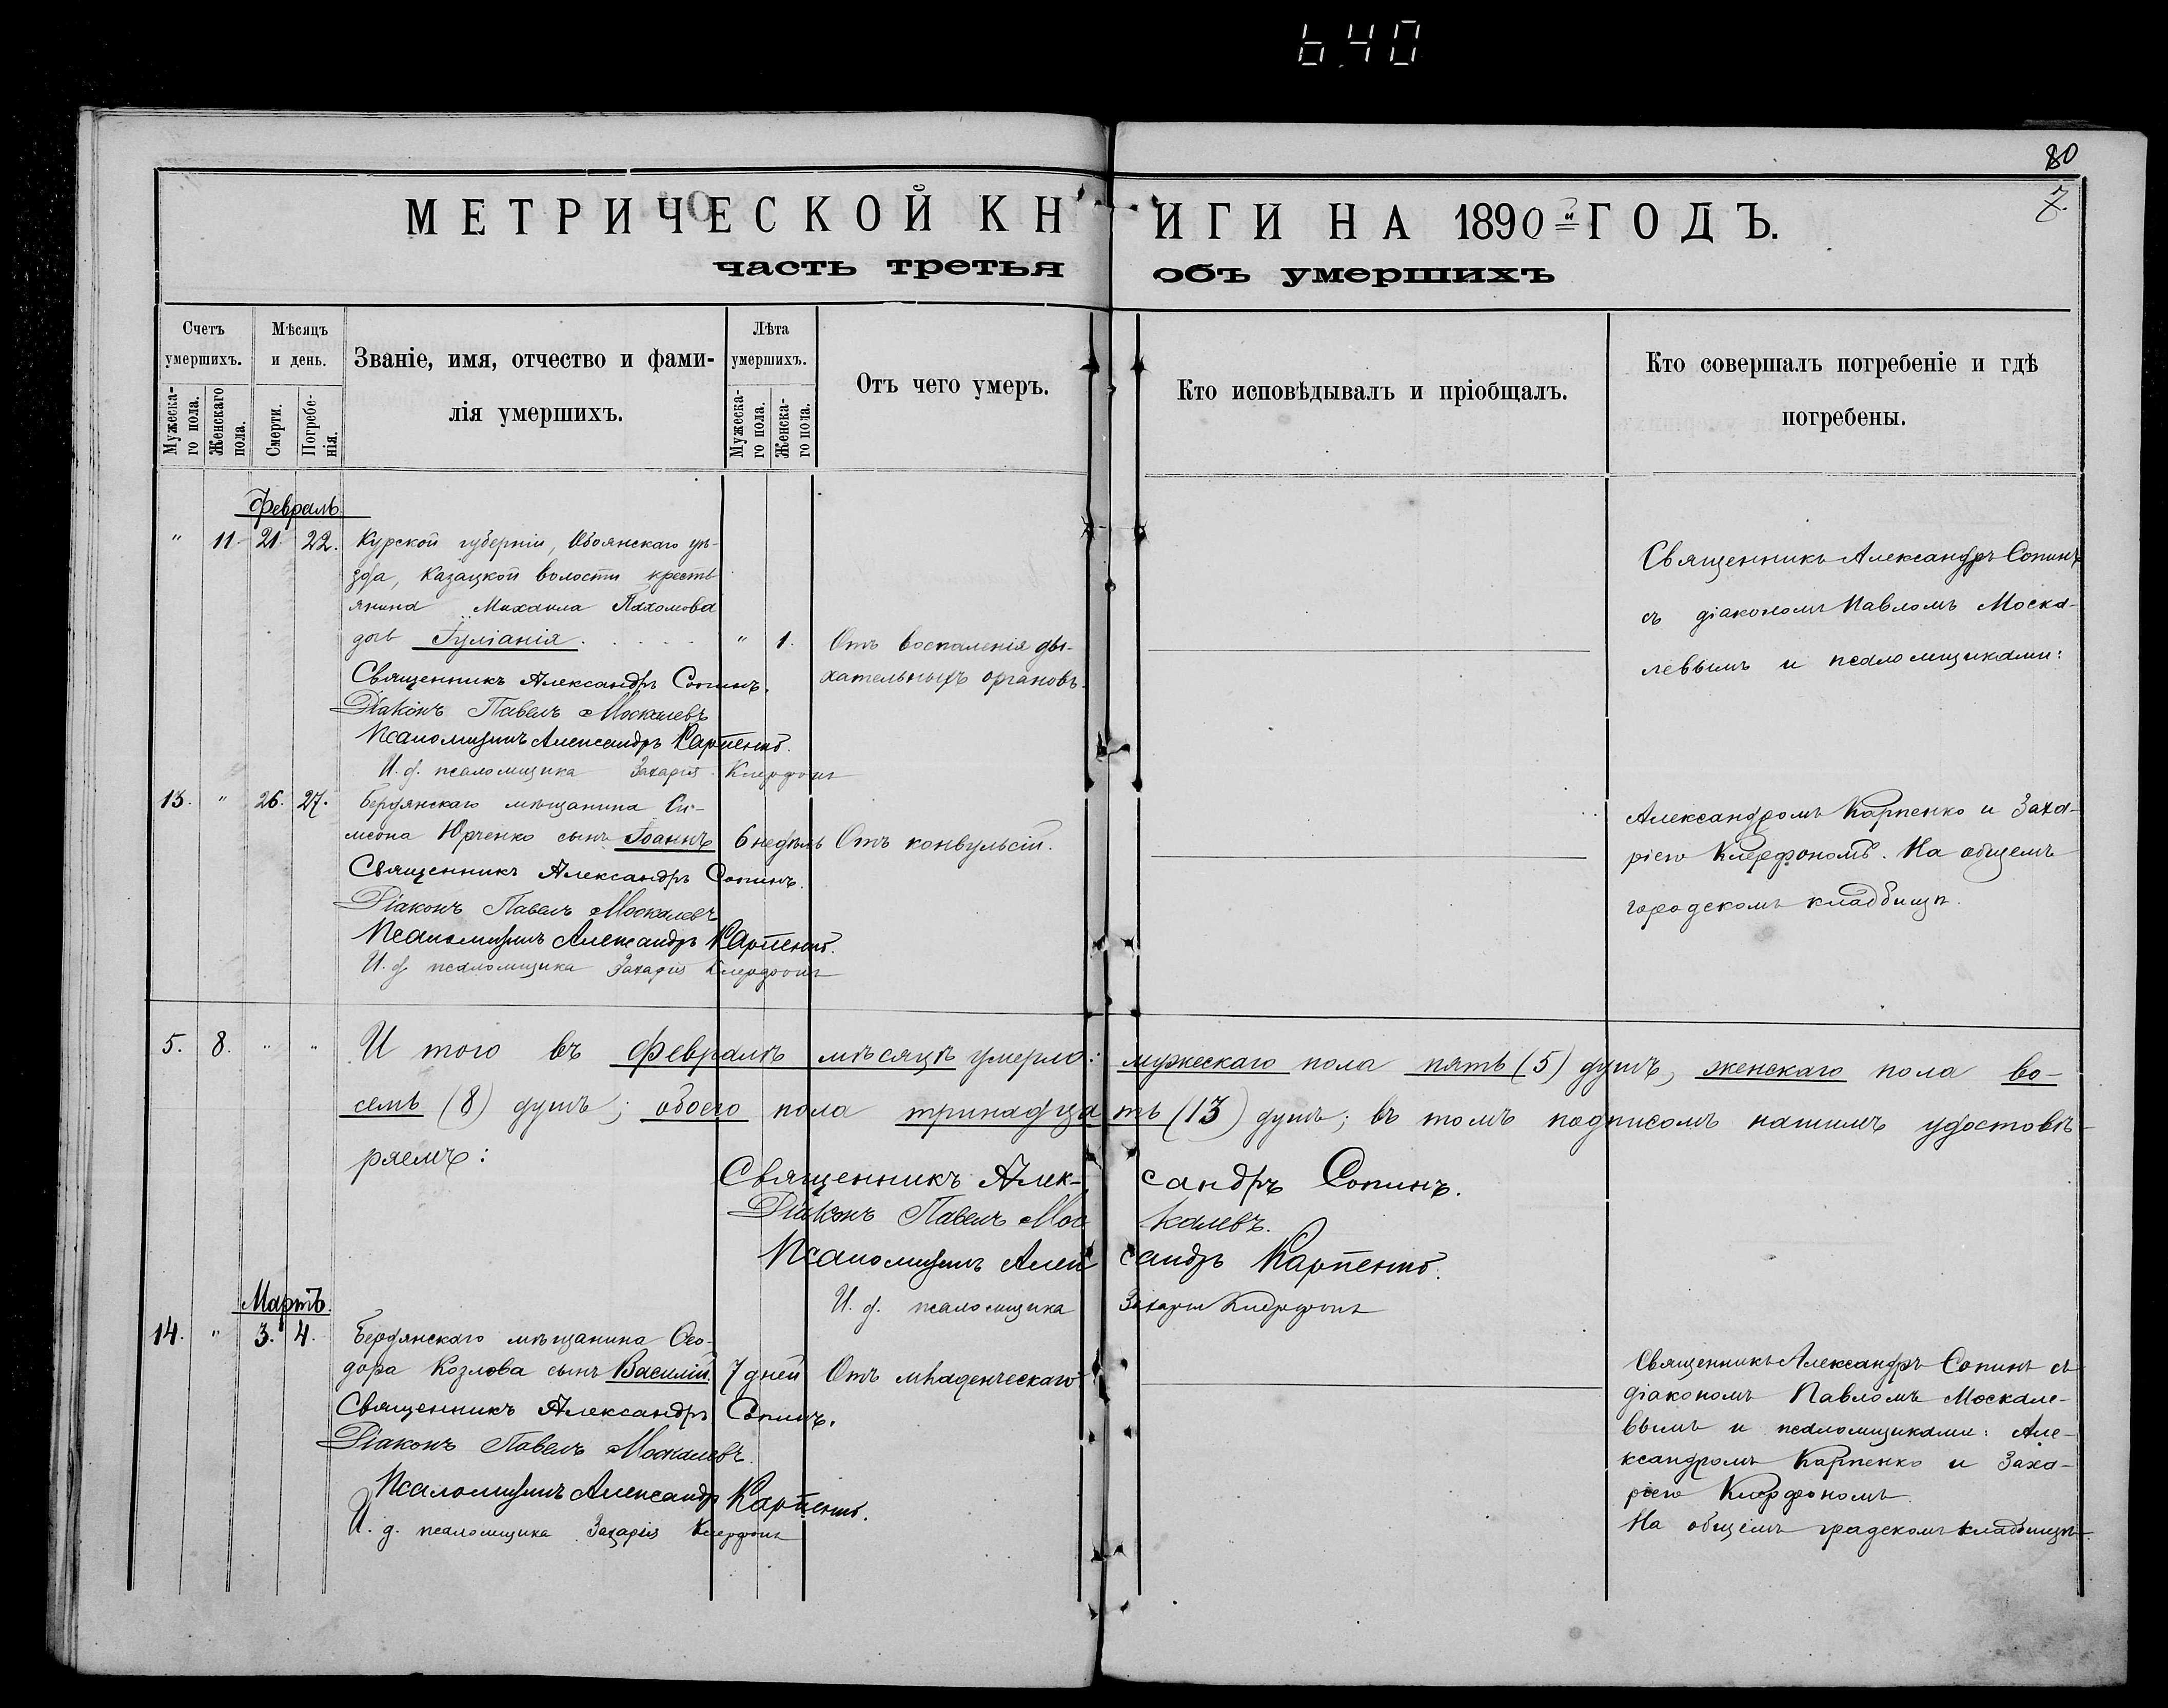 640
80
7.
МЕТРИЧЕСКОЙ КНИГИ НА 1890й ГОДЪ.
часть третья объ умершихъ
Счетъ умершихъ.
Мужеска-го пола.
Женскаго пола.
Мѣсяцъ и день.
Смерти.
Погребе-нія.
Званіе, имя, отчество и фами-
лія умершихъ.
Лѣта умершихъ.
Мужеска-го пола.
Женска-го пола.
Отъ чего умеръ.
Кто исповѣдывалъ и пріобщалъ.
Кто совершалъ погребеніе и гдѣ
погребены.
Февраль
" 11. 21. 22. Курской губерніи, Обоянскаго уѣ-
зда, Казацкой волости кресть
янина Михаила Пахомова
дочь Іуліанія. " 1. Отъ воспаленія ды-
хательныхъ органовъ.
Священникъ Александръ Сопинъ.
Діаконъ Павелъ Москалевъ
Псаломщикъ Александръ Карпенко.
И. д. псаломщика Захарія Клерфонъ
Священникъ Александръ Сопинъ
съ діакономъ Павломъ Моска-
левымъ и псаломщиками:
13. " 26. 27. Бердянскаго мѣщанина Си-
меона Юрченко сынъ Іоаннъ 6 недѣль Отъ конвульсій.
Священникъ Александръ Сопинъ.
Діаконъ Павелъ Москалевъ
Псаломщикъ Александръ Карпенко.
И. д. псаломщика Захарія Клерфонъ
Александромъ Карпенко и Заха-
ріею Клерфономъ. На общемъ
городскомъ кладбищѣ.
5. 8. " " И того въ Февралѣ мѣсяцѣ умерло: мужескаго пола пять (5) душъ, женскаго пола во-
семь (8) душъ; обоего пола тринадцать (13) душъ; въ томъ подписомъ нашимъ удостовѣ-
ряемъ:
Священникъ Александръ Сопинъ.
Діаконъ Павелъ Москалевъ.
Псаломщикъ Александръ Карпенко.
И. д. псаломщика Захарія Клерфонъ
Мартъ.
14. " 3. 4. Бердянскаго мѣщанина Ѳео-
дора Козлова сынъ Василій. 7 дней Отъ младенческаго.
Священникъ Александръ Сопинъ.
Діаконъ Павелъ Москалевъ.
Псаломщикъ Александръ Карпенко.
И. д. псаломщика Захарія Клерфонъ
Священникъ Александръ Сопинъ съ
діакономъ Павломъ Москале-
вымъ и псаломщиками: Але-
ксандромъ Карпенко и Заха-
ріею Клерфономъ.
На общемъ градскомъ кладбищѣ.